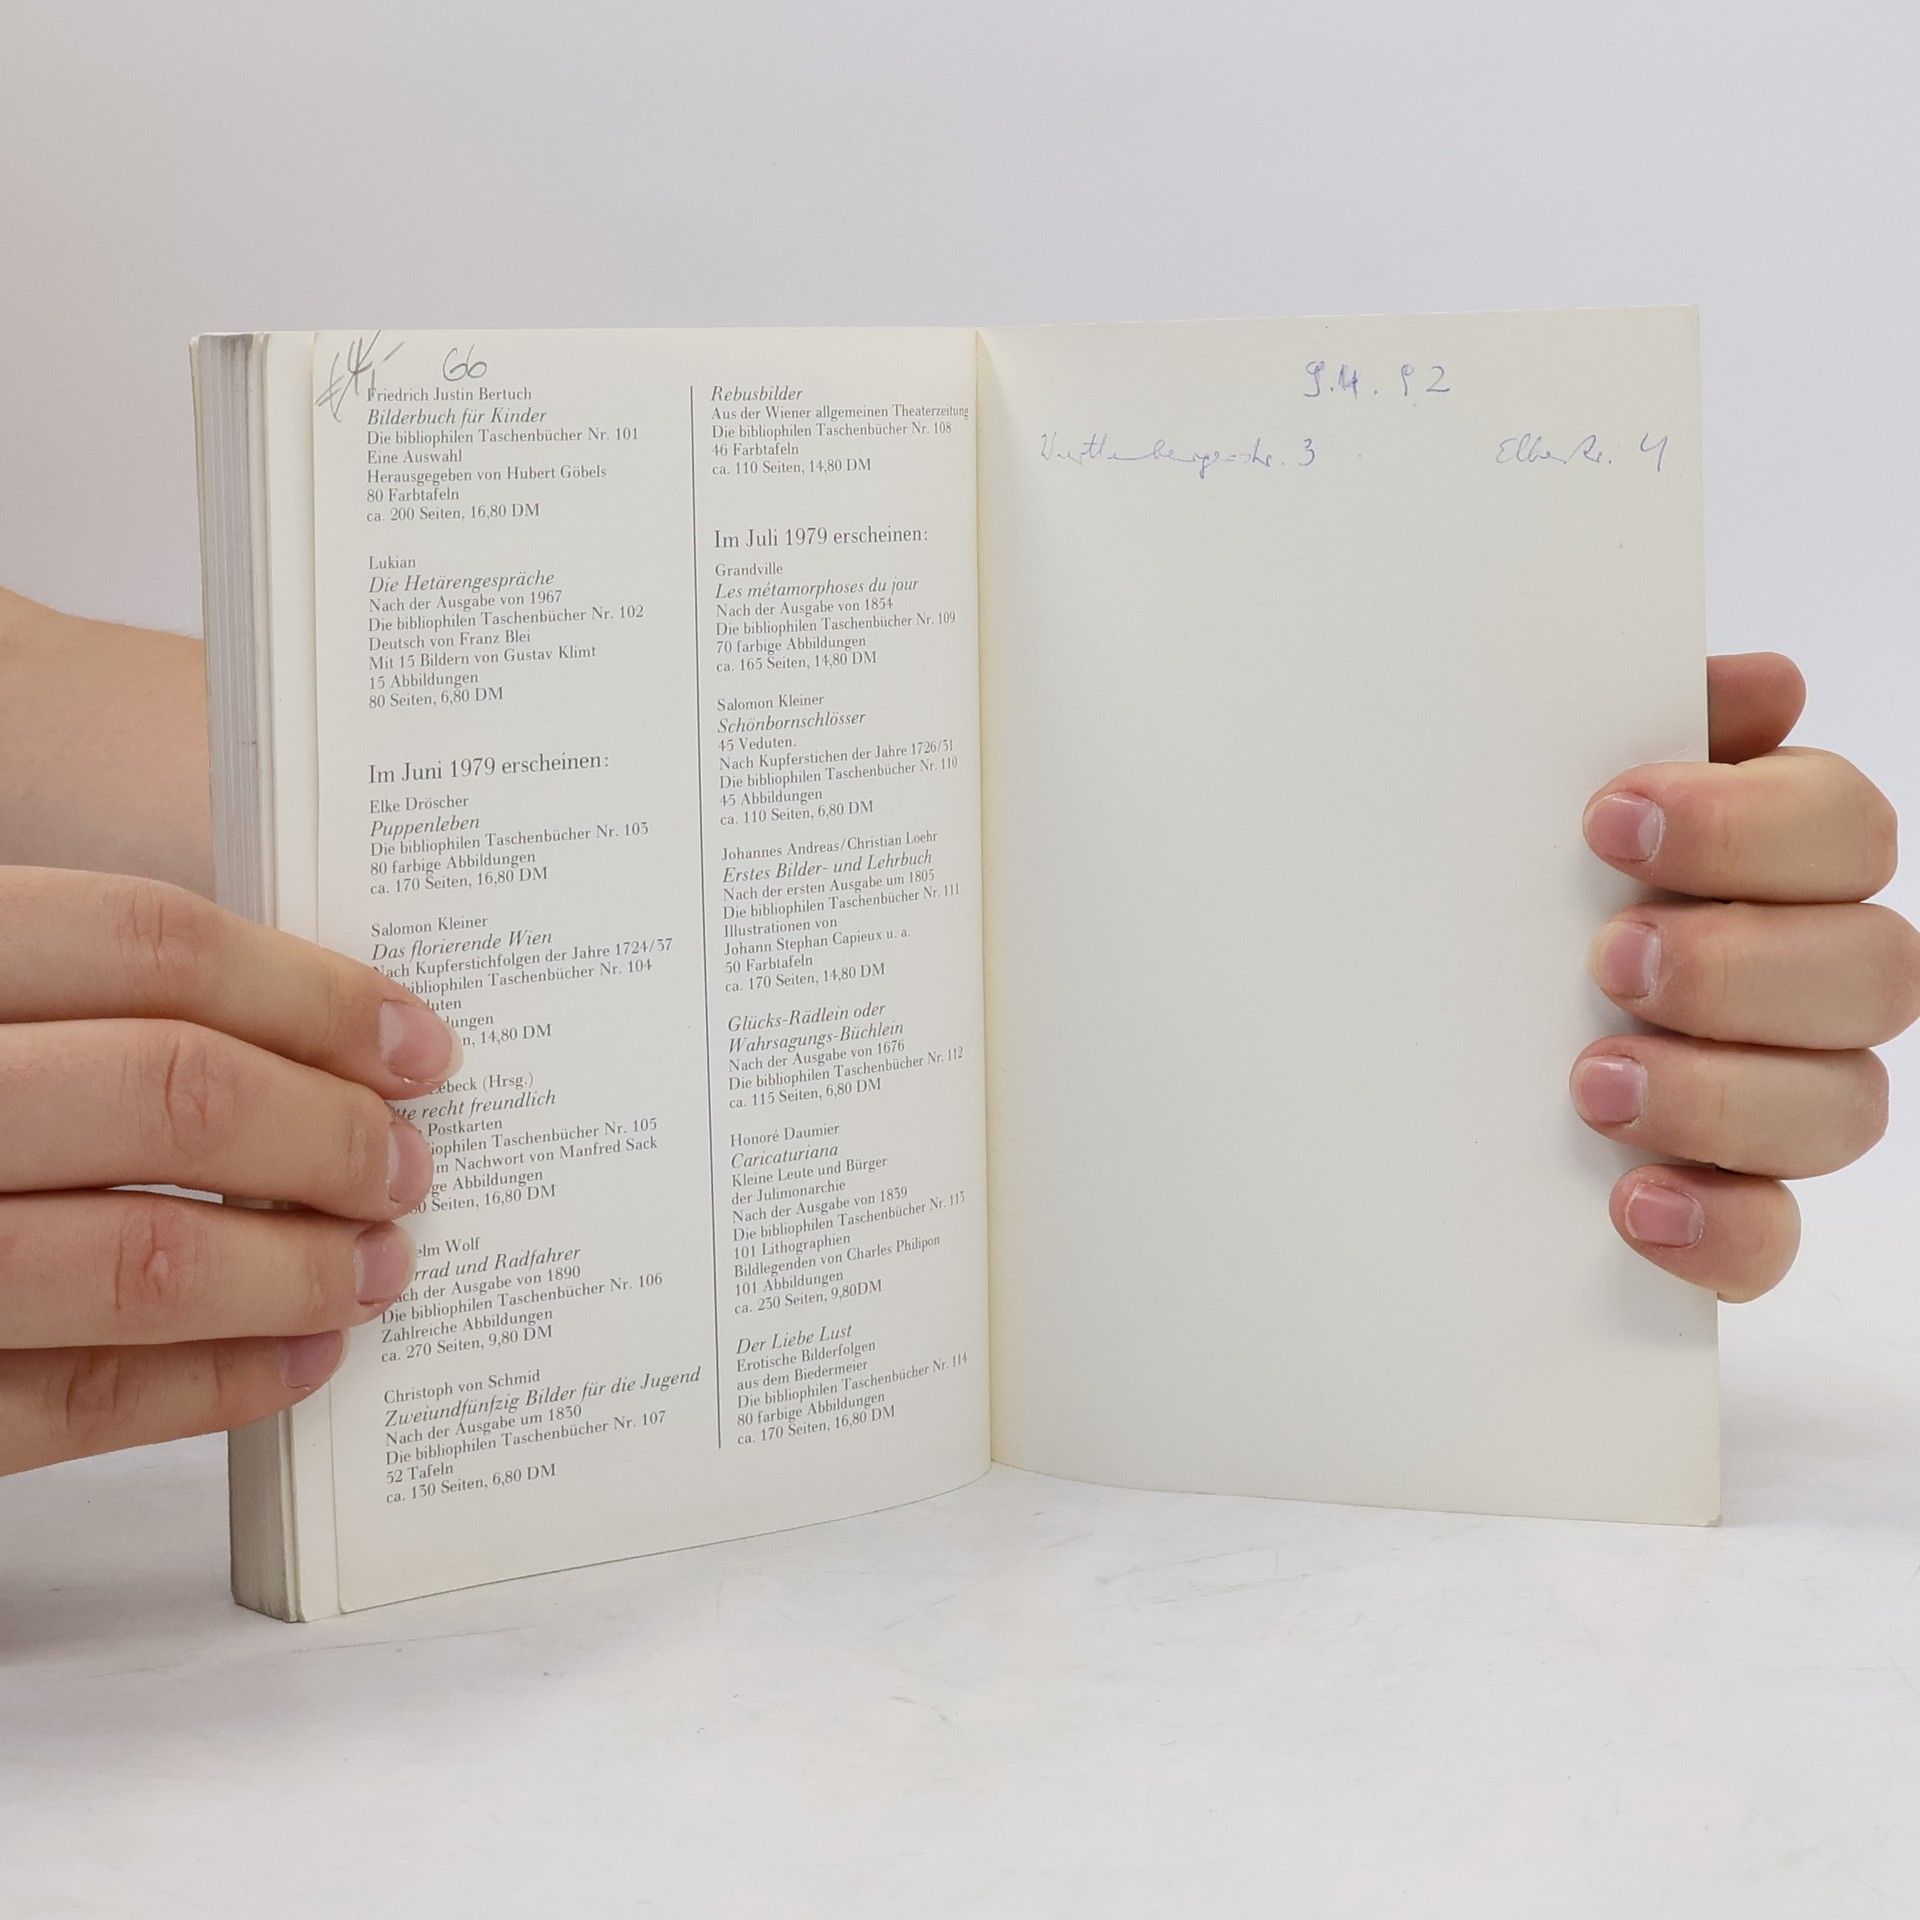 66
Friedrich Justin Bertuch
Bilderbuch für Kinder
Die bibliophilen Taschenbücher Nr. 101
Eine Auswahl
Herausgegeben von Hubert Göbels
80 Farbtafeln
ca. 200 Seiten, 16,80 DM
Lukian
Die Hetärengespräche
Nach der Ausgabe von 1967
Die bibliophilen Taschenbücher Nr. 102
Deutsch von Franz Blei
Mit 15 Bildern von Gustav Klimt
15 Abbildungen
80 Seiten, 6,80 DM
Im Juni 1979 erscheinen:
Elke Dröscher
Puppenleben
Die bibliophilen Taschenbücher Nr. 103
80 farbige Abbildungen
ca. 170 Seiten, 16,80 DM
Salomon Kleiner
Das florierende Wien
Nach Kupferstichfolgen der Jahre 1724/37
bibliophilen Taschenbücher Nr. 104
14,80 DM
(Hrsg.)
recht freundlich
Postkarten
Taschenbücher Nr. 105
Nachwort von Manfred Sack
Abbildungen
Seiten, 16,80 DM
Wolf
und Radfahrer
Nach der Ausgabe von 1890
Die bibliophilen Taschenbücher Nr. 106
Zahlreiche Abbildungen
ca. 270 Seiten, 9,80 DM
Christoph von Schmid
Zweiundfünfzig Bilder für die Jugend
Nach der Ausgabe um 1830
Die bibliophilen Taschenbücher Nr. 107
52 Tafeln
ca. 130 Seiten, 6,80 DM
Rebusbilder
Aus der Wiener allgemeinen Theaterzeitung
Die bibliophilen Taschenbücher Nr. 108
46 Farbtafeln
ca. 110 Seiten, 14,80 DM
Im Juli 1979 erscheinen:
Grandville
Les métamorphoses du jour
Nach der Ausgabe von 1854
Die bibliophilen Taschenbücher Nr. 109
70 farbige Abbildungen
ca. 165 Seiten, 14,80 DM
Salomon Kleiner
Schönbornschlösser
45 Veduten.
Nach Kupferstichen der Jahre 1726/31
Die bibliophilen Taschenbücher Nr. 110
45 Abbildungen
ca. 110 Seiten, 6,80 DM
Johannes Andreas/Christian Loehr
Erstes Bilder- und Lehrbuch
Nach der ersten Ausgabe um 1805
Die bibliophilen Taschenbücher Nr. 111
Illustrationen von
Johann Stephan Capieux u. a.
50 Farbtafeln
ca. 170 Seiten, 14,80 DM
Glücks-Rädlein oder
Wahrsagungs-Büchlein
Nach der Ausgabe von 1676
Die bibliophilen Taschenbücher Nr. 112
ca. 115 Seiten, 6,80 DM
Honoré Daumier
Caricaturiana
Kleine Leute und Bürger
der Julimonarchie
Nach der Ausgabe von 1839
Die bibliophilen Taschenbücher Nr. 113
101 Lithographien
Bildlegenden von Charles Philipon
101 Abbildungen
ca. 230 Seiten, 9,80DM
Der Liebe Lust
Erotische Bilderfolgen
aus dem Biedermeier
Die bibliophilen Taschenbücher Nr. 114
80 farbige Abbildungen
ca. 170 Seiten, 16,80 DM
3
4